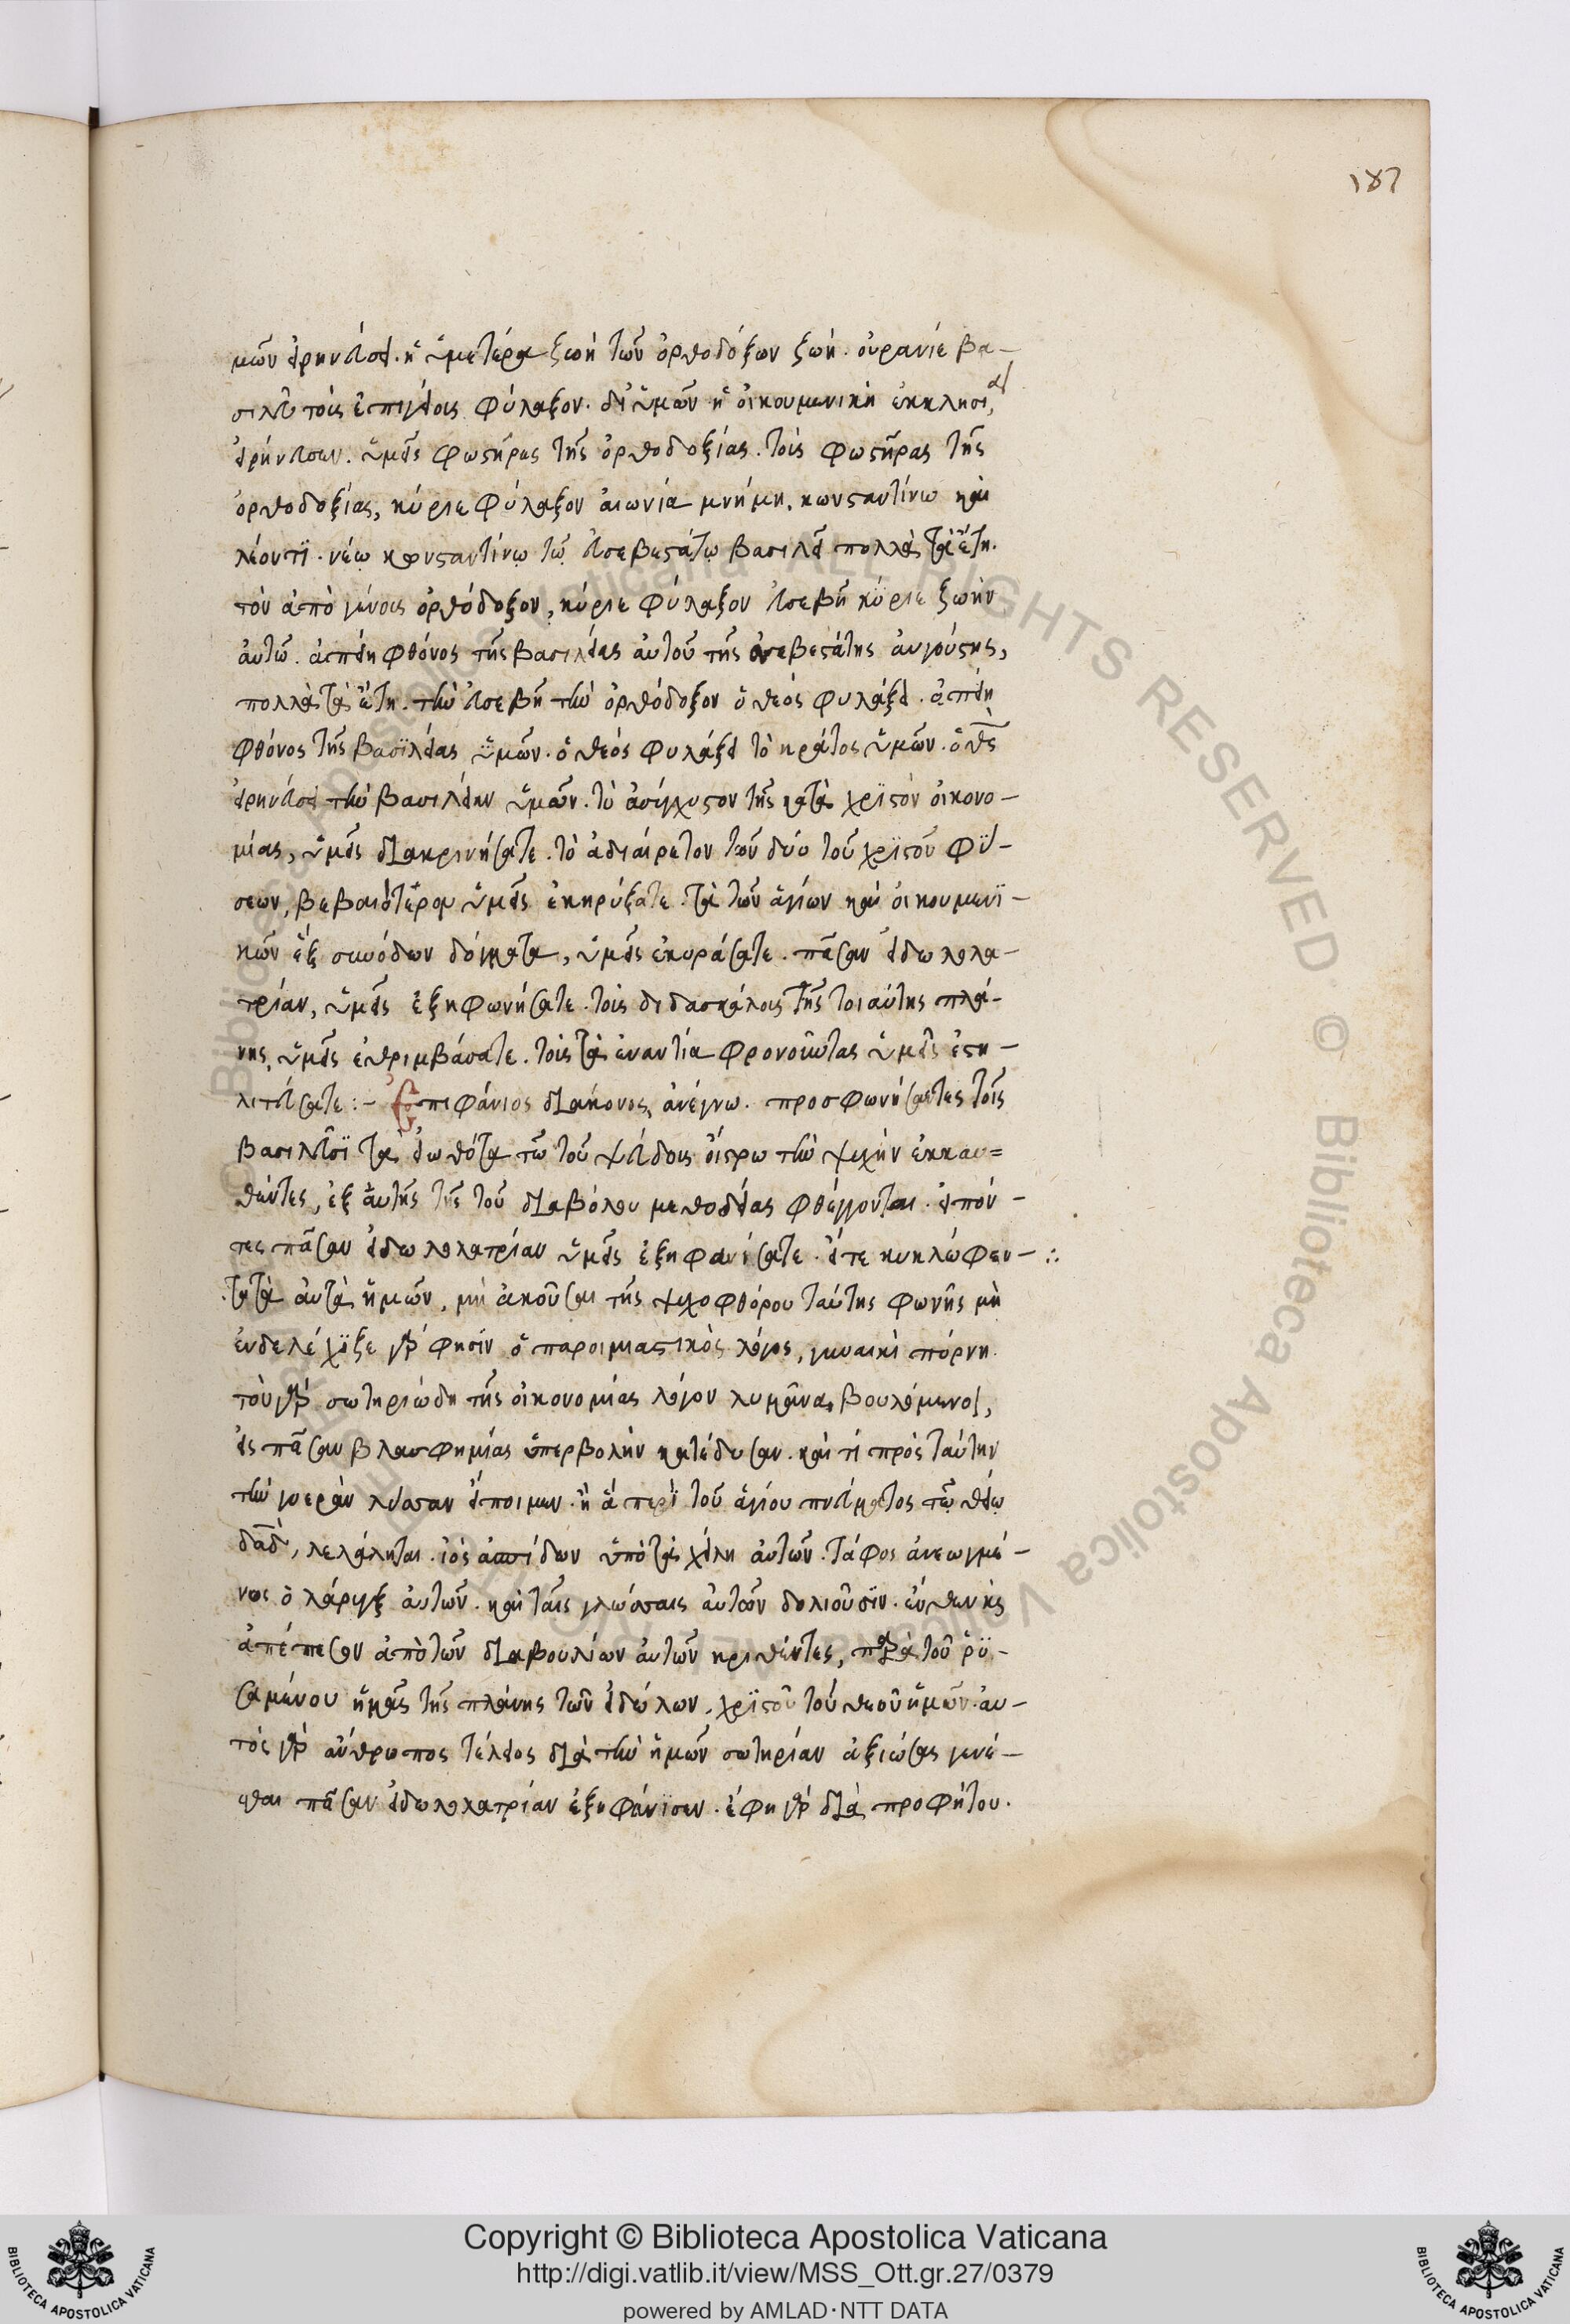 187
μῶν εἰρηνεύσει. ἡ ὑμετέρα ζωὴ τῶν ὀρθοδόξων ζωή. οὐράνιε βα-
σιλεῦ τοὺς ἐπιγείους φύλαξον. δι' ὑμῶν ἡ οἰκουμενικὴ ἐκκλησία
εἰρήνευσεν. ὑμεῖς φωστῆρες τῆς ὀρθοδοξίας. τοὺς φωστῆρας τῆς
ὀρθοδοξίας, κύριε φύλαξον αἰωνία μνήμη. κωνσταντίνω καὶ
λέοντϊ. νέῳ κωνσταντίνῳ τῷ εὐσεβεστάτῳ βασιλεῖ πολλὰ τὰ ἔτη.
τὸν ἀπὸ γένους ὀρθόδοξον, κύριε φύλαξον εὐσεβῆ κύριε ζωὴν
αὐτῶ. ἀπείη φθόνος τῆς βασιλείας αὐτοῦ τῆς εὐσεβεστάτης αὐγούστης,
πολλὰ τὰ ἔτη. τὴν εὐσεβῆ τὴν ὀρθόδοξον ὁ θεὸς φυλάξει. ἀπείη
φθόνος τῆς βασϊλείας ὑμῶν. ὁ θεὸς φυλάξει τὸ κράτος ὑμῶν. ὁ θς
εἰρηνεύσει τὴν βασιλείαν ὑμῶν. τὸ ἀσύγχυστον τῆς κατὰ χρϊστὸν οἰκονο-
μίας, ὑμεῖς διακρινήσατε. τὸ ἀδιαίρετον τῶν δύο τοῦ χρϊστοῦ φύ-
σεων, βεβαιότερον ὑμεῖς ἐκηρύξατε. τὰ τῶν ἁγίων καὶ οἰκουμενϊ-
κῶν ἓξ συνόδων δόγματα, ὑμεῖς ἐκυράσατε. πᾶσαν εἰδωλολα-
τρίαν, ὑμεῖς ἐξηφωνήσατε. τοὺς διδασκάλους τῆς τοιαύτης πλά-
νης, ὑμεῖς ἐθριμβάσατε. τοὺς τὰ ἐναντία φρονοῦντας ὑμεῖς ἐστη-
λιτεύσατε :- Ἐπιφάνιος διάκονος, ἀνέγνω. προσφωνήσαντες τοῖς
βασιλεῦσϊ τὰ εἰωθότα τῶ τοῦ ψεύδους οἴστρω τὴν ψυχὴν ἐκκαυ=
θέντες, ἐξ αὐτῆς τῆς τοῦ διαβόλου μεθοδείας φθέγγονται. εἰπόν-
τες πᾶσαν εἰδωλολατρίαν ὑμεῖς ἐξηφανίσατε. εἴτε κυκλώφεν- ∴
τατὰ αὐτὰ ἡμῶν, μὴ ἀκοῦσαι τῆς ψυχοφθόρου ταύτης φωνῆς μὴ
ἐνδελέχϊζε γάρ φησϊν ὁ παροιμιαστικὸς λόγος, γυναικὶ πόρνη.
τὸν γὰρ σωτηριώδη τῆς οἰκονομίας λόγον λυμᾶναι βουλόμενοι,
εἰς πᾶσαν βλασφημίας ὑπερβολὴν κατέδυσαν. καὶ τί πρὸς ταύτην
τὴν μιερὰν λύσσαν εἴποιμεν. ἢ ἅ περὶ τοῦ ἁγίου πνεύματος τῷ θείῳ
δαδ, λελάληται. ἰὸς ἀσπίδων ὑπὸ τὰ χείλη αὐτῶν. τάφος ἀνεωγμέ-
νος ὁ λάρυγξ αὐτῶν. καὶ ταῖς γλώσσαις αὐτῶν δολιοῦσϊν. ἔνθεν καὶ
ἀπέπεσον ἀπὸ τῶν διαβουλίων αὐτῶν κριθέντες, παρὰ τοῦ ῥϋ-
σαμένου ἡμᾶς τῆς πλάνης τῶν εἰδώλων. χρϊστοῦ τοῦ θεοῦ ἡμῶν. αὐ-
τὸς γὰρ ἄνθρωπος τέλειος διὰ τὴν ἡμῶν σωτηρίαν ἀξιώσας γενέ-
σθαι πᾶσαν εἰδωλολατρίαν ἐξηφάνϊσεν. ἔφη γὰρ διὰ προφήτου.
© Biblioteca Apostolica Vaticana ALL RIGHTS RESERVED
Copyright © Biblioteca Apostolica Vaticana
http://digi.vatlib.it/view/MSS_Ott.gr.27/0379
powered by AMLAD·NTT DATA
BIBLIOTECA APOSTOLICA VATICANA
BIBLIOTECA APOSTOLICA VATICANA